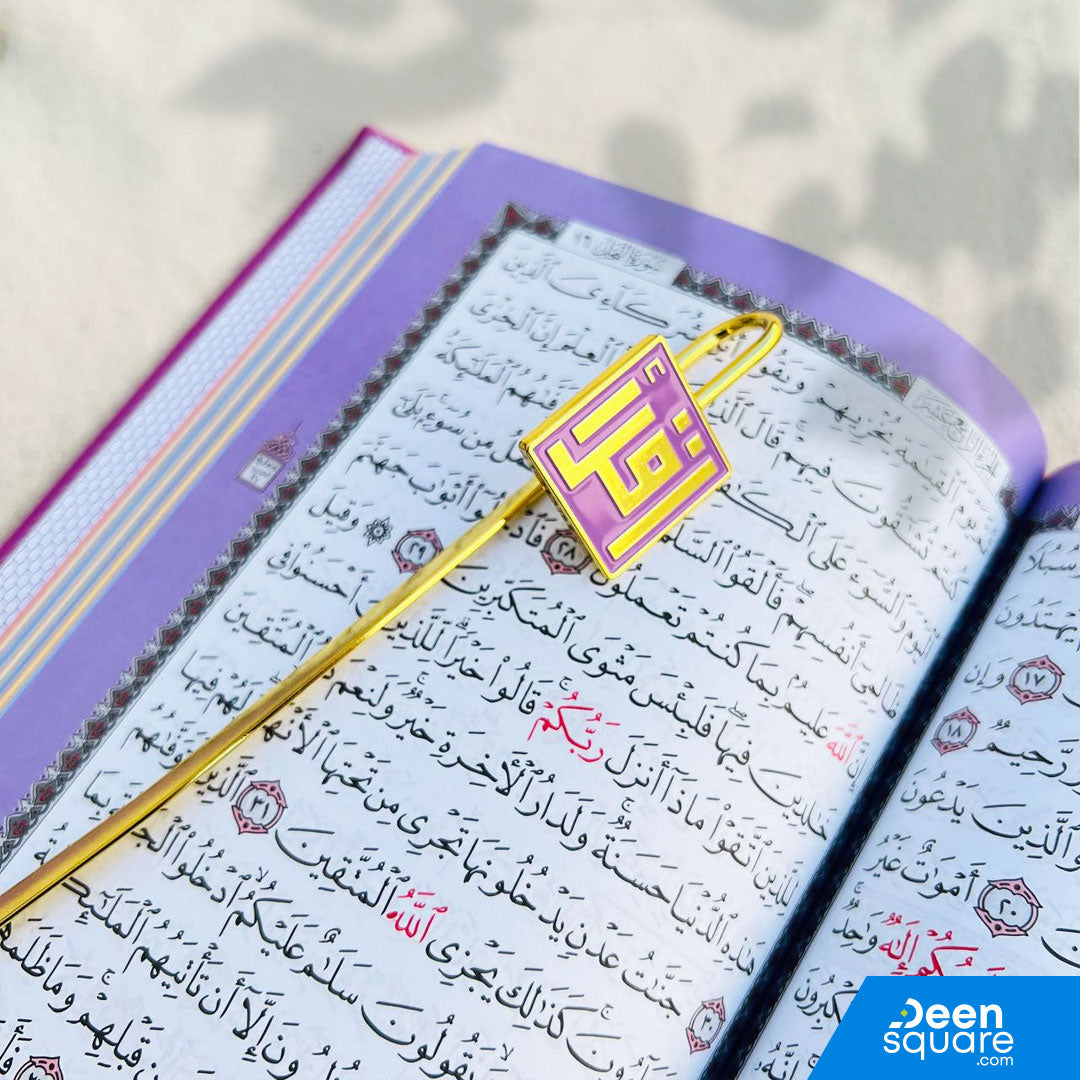 سُورَةُ النَّحْلِ ١٦
يَوْمَ ٱلْقِيَٰمَةِ يُخْزِيهِمْ وَيَقُولُ شُرَكَآءِىَ ٱلَّذِينَ
كُنتُمْ تُشَٰٓقُّونَ فِيهِمْ قَالَ ٱلَّذِينَ ٱلْعِلْمَ إِنَّ ٱلْخِزْىَ
ٱلْيَوْمَ وَٱلسُّوٓءَ عَلَى ٱلْمَلَٰٓئِكَةُ
ظَالِمِىٓ أَنفُسِهِمْ فَأَلْقَوُا۟ ٱلسَّلَمَ مِن سُوٓءٍۭ بَلَىٰٓ
إِنَّ ٱللَّهَ عَلِيمٌۢ بِمَا كُنتُمْ تَعْمَلُونَ ٢٨ فَٱدْخُلُوٓا۟ أَبْوَٰبَ جَهَنَّمَ
خَٰلِدِينَ فِيهَا فَلَبِئْسَ مَثْوَى ٱلْمُتَكَبِّرِينَ ٢٩ وَقِيلَ
لِلَّذِينَ ٱتَّقَوْا۟ مَاذَآ أَنزَلَ رَبُّكُمْ قَالُوا۟ خَيْرًا لِّلَّذِينَ أَحْسَنُوا۟ فِى
هَٰذِهِ ٱلدُّنْيَا حَسَنَةٌ وَلَدَارُ ٱلْءَاخِرَةِ خَيْرٌ وَلَنِعْمَ دَارُ ٱلْمُتَّقِينَ
٣٠ جَنَّٰتُ عَدْنٍ يَدْخُلُونَهَا تَجْرِى مِن تَحْتِهَا ٱلْأَنْهَٰرُ لَهُمْ فِيهَا
كَذَٰلِكَ يَجْزِى ٱللَّهُ ٱلْمُتَّقِينَ ٣١ ٱلَّذِينَ
يَقُولُونَ سَلَٰمٌ عَلَيْكُمُ ٱدْخُلُوا۟ بِمَا
إِلَّآ أَن تَأْتِيَهُمُ ٱلْمَلَٰٓئِكَةُ
قَبْلِهِمْ وَمَا
ٱقْرَأْ
يَهْتَدُونَ
١٧ وَإِن
رَّحِيمٌ ١٨
وَٱلَّذِينَ يَدْعُونَ
٢٠ أَمْوَٰتٌ غَيْرُ
إِلَٰهٌ وَٰحِدٌ
Deen
square
.com